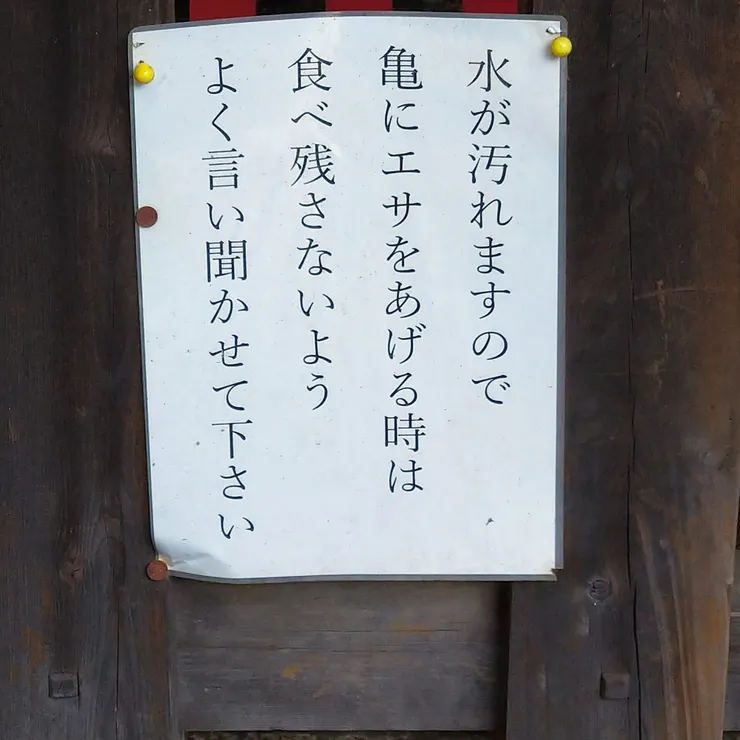 水が汚れますので
亀にエサをあげる時は
食べ残さないよう
よく言い聞かせて下さい